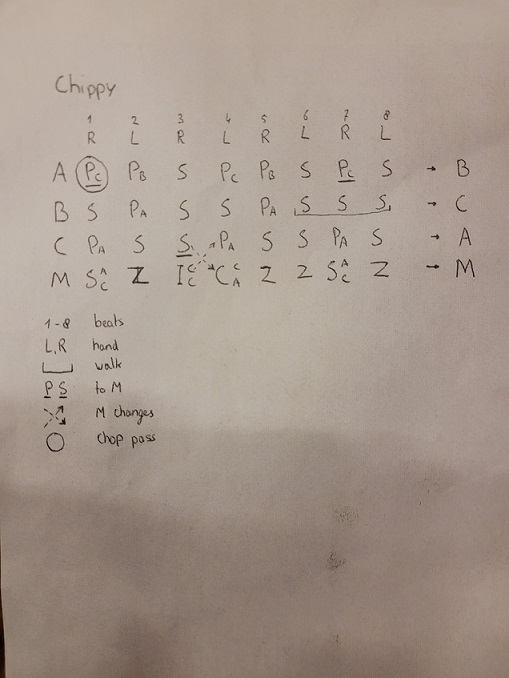 Chippy
1 2 3 4 5 6 7 8
R L R L R L R L
A Pc PB S Pc PB S Pc S → B
B S PA S S PA S S S → C
C PA S S PA S S PA S → A
M S A C Z I C C C C A Z Z S A C Z → M
1-8 beats
L,R hand
walk
P S to M
M changes
Chop pass